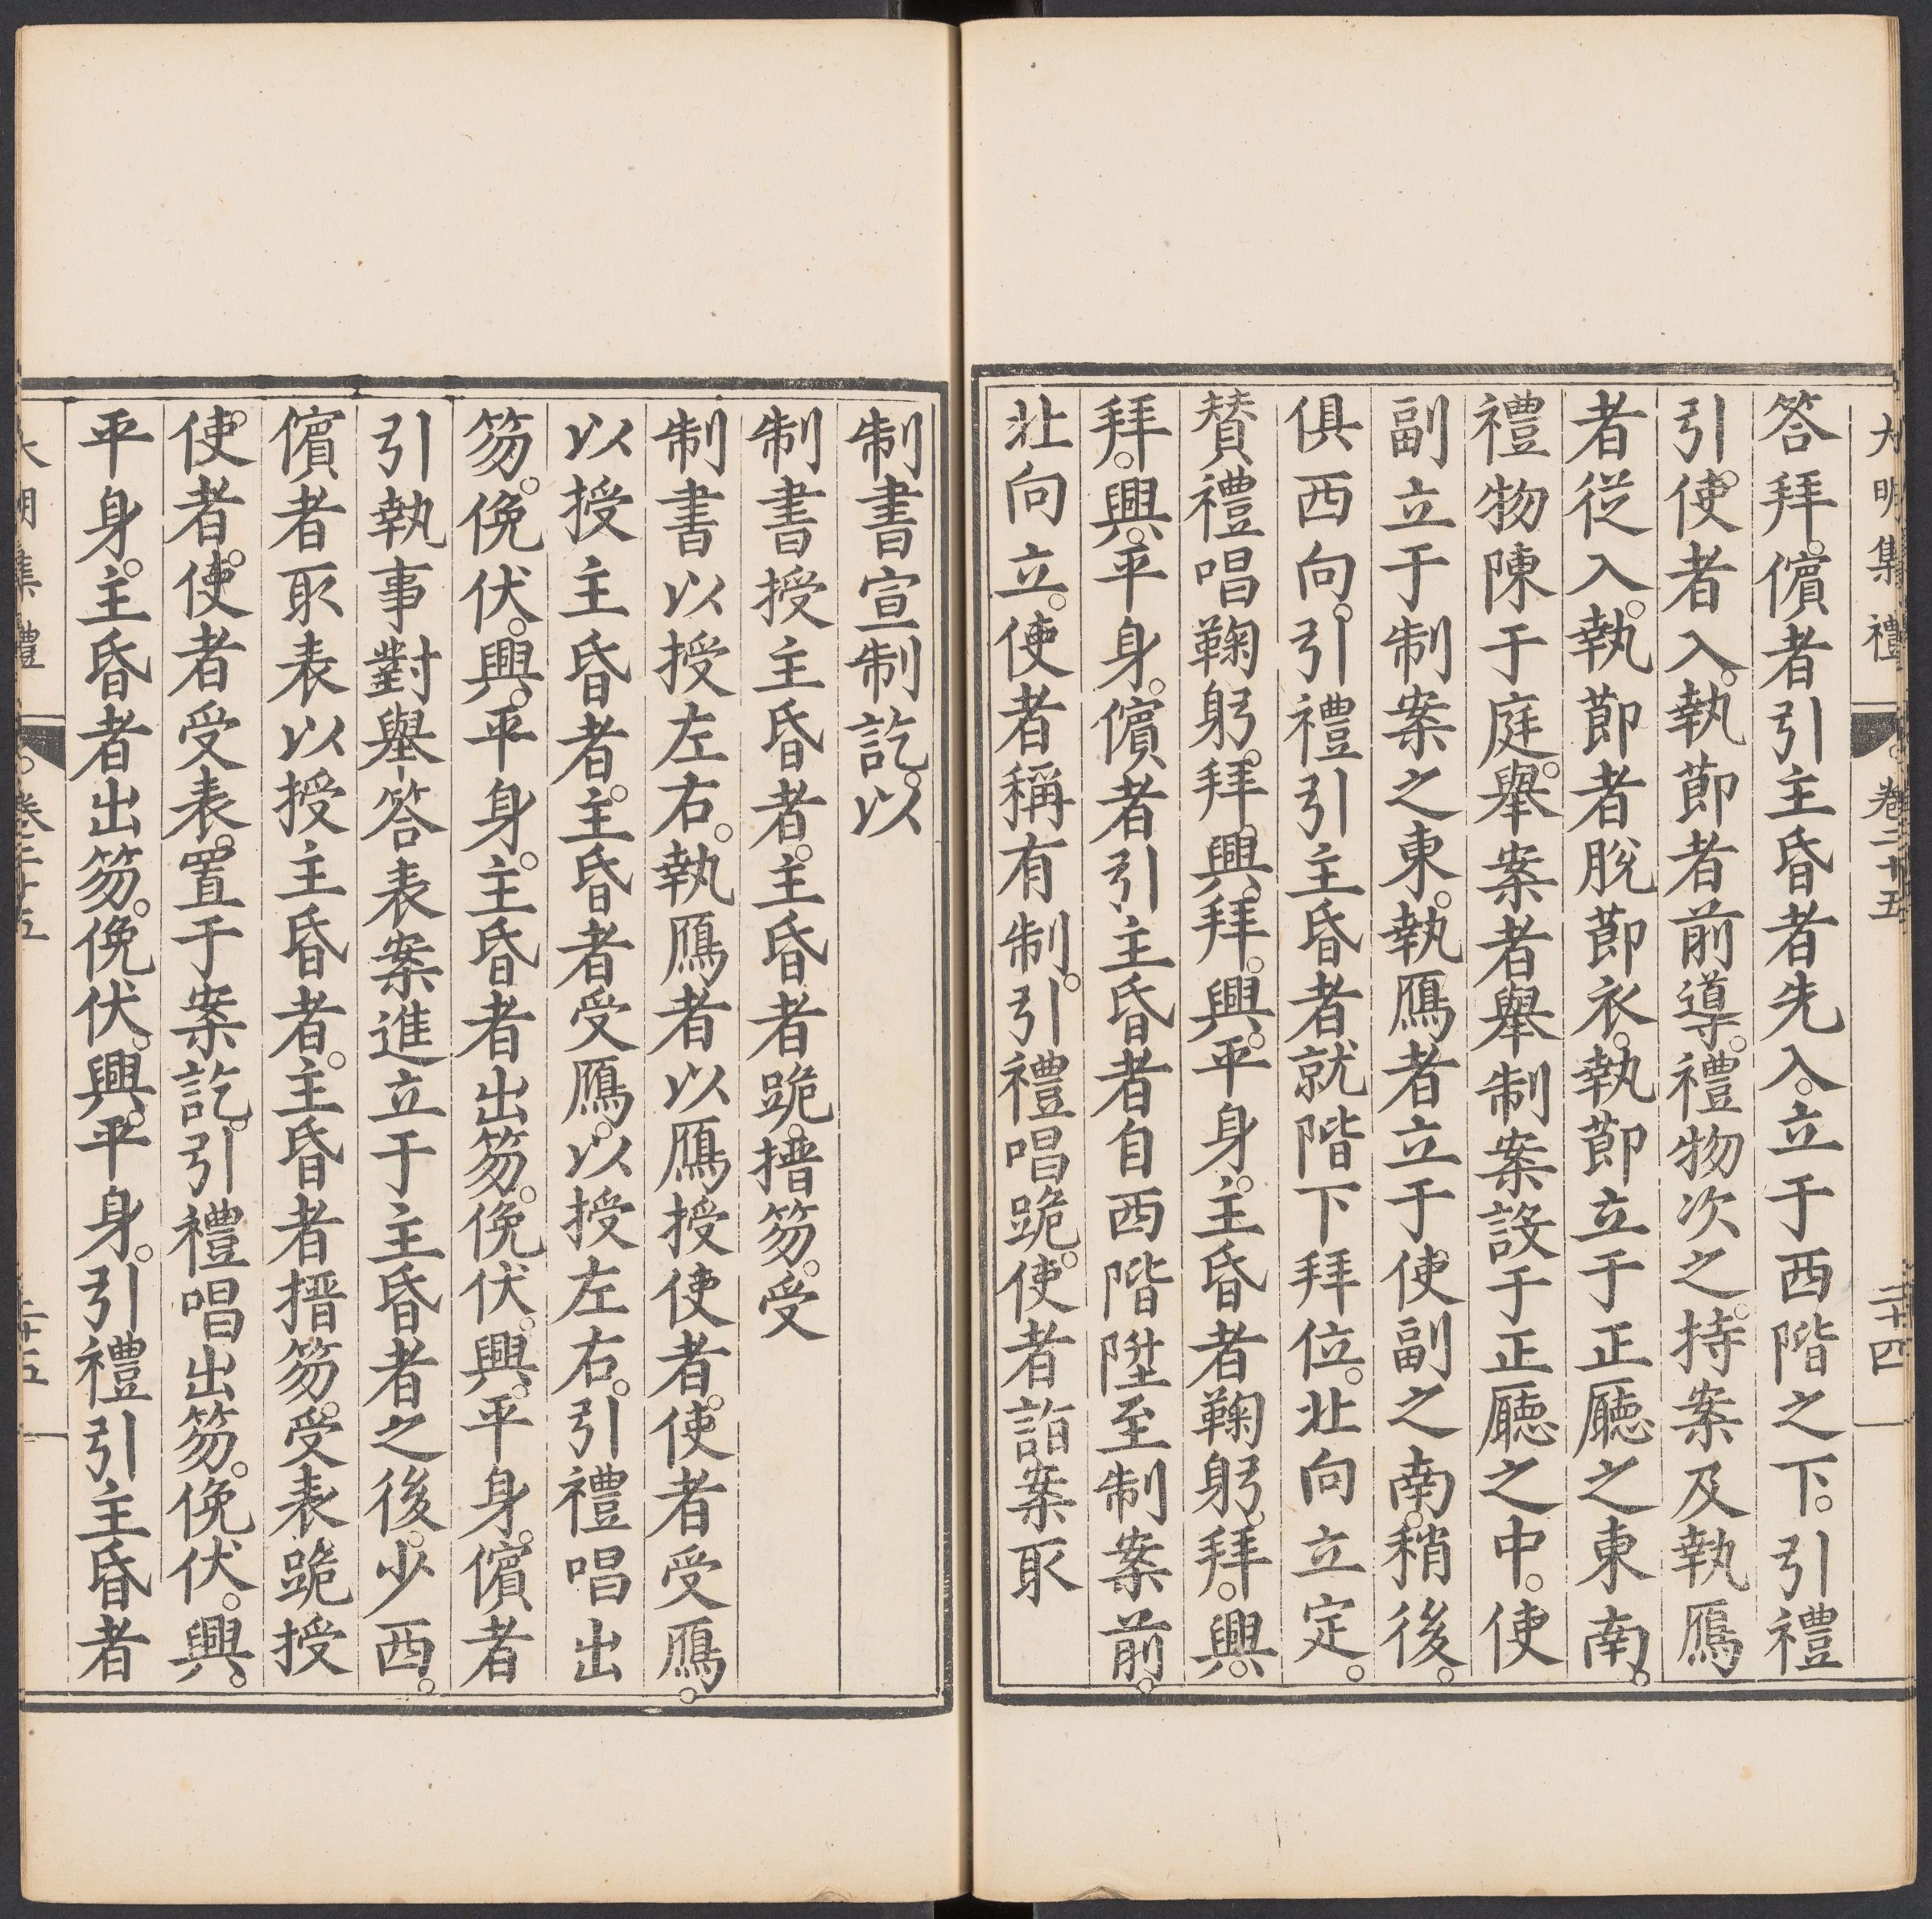 大明集禮 卷二十五 二十四
答拜。儐者引主昏者先入。立于西階之下。引禮
引。使者入。執節者前導。禮物次之。持案及執鴈
者從入。執節者脫節衣。執節立于正廳之東南。
禮物陳于庭。舉案者舉制案設于正廳之中。使
副立于制案之東。執鴈者立于使副之南。稍後。
俱西向。引禮引主昏者就階下拜位。北向立定。
賛禮唱鞠躬。拜。興。拜。興。平身。主昏者鞠躬。拜。興。
拜。興。平身。儐者引主昏者自西階陞至制案前。
北向立。使者稱有制。引禮唱跪。使者詣案取
制書宣制訖。以
制書授主昏者。主昏者跪。搢笏。受
制書以授左右。執鴈者以鴈授使者。使者受鴈。
以授主昏者。主昏者受鴈。以授左右。引禮唱出
笏。俛伏。興。平身。主昏者出笏。俛伏。興。平身。儐者
引執事對舉答表案進立于主昏者之後。少西。
儐者取表以授主昏者。主昏者搢笏。受表跪授
使者。使者受表。置于案訖。引禮唱出笏。俛伏。興。
平身。主昏者出笏。俛伏。興。平身。引禮引主昏者
大明集禮 卷二十五 二十五